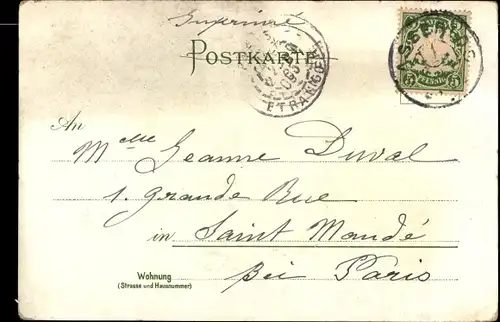 Imprimé
POSTKARTE
ETRANGER
5 PFENNIG 5
An
Mlle Jeanne Duval
1. Grande Rue
in Saint Mandé
Wohnung
(Strasse und Hausnummer)
bei Paris